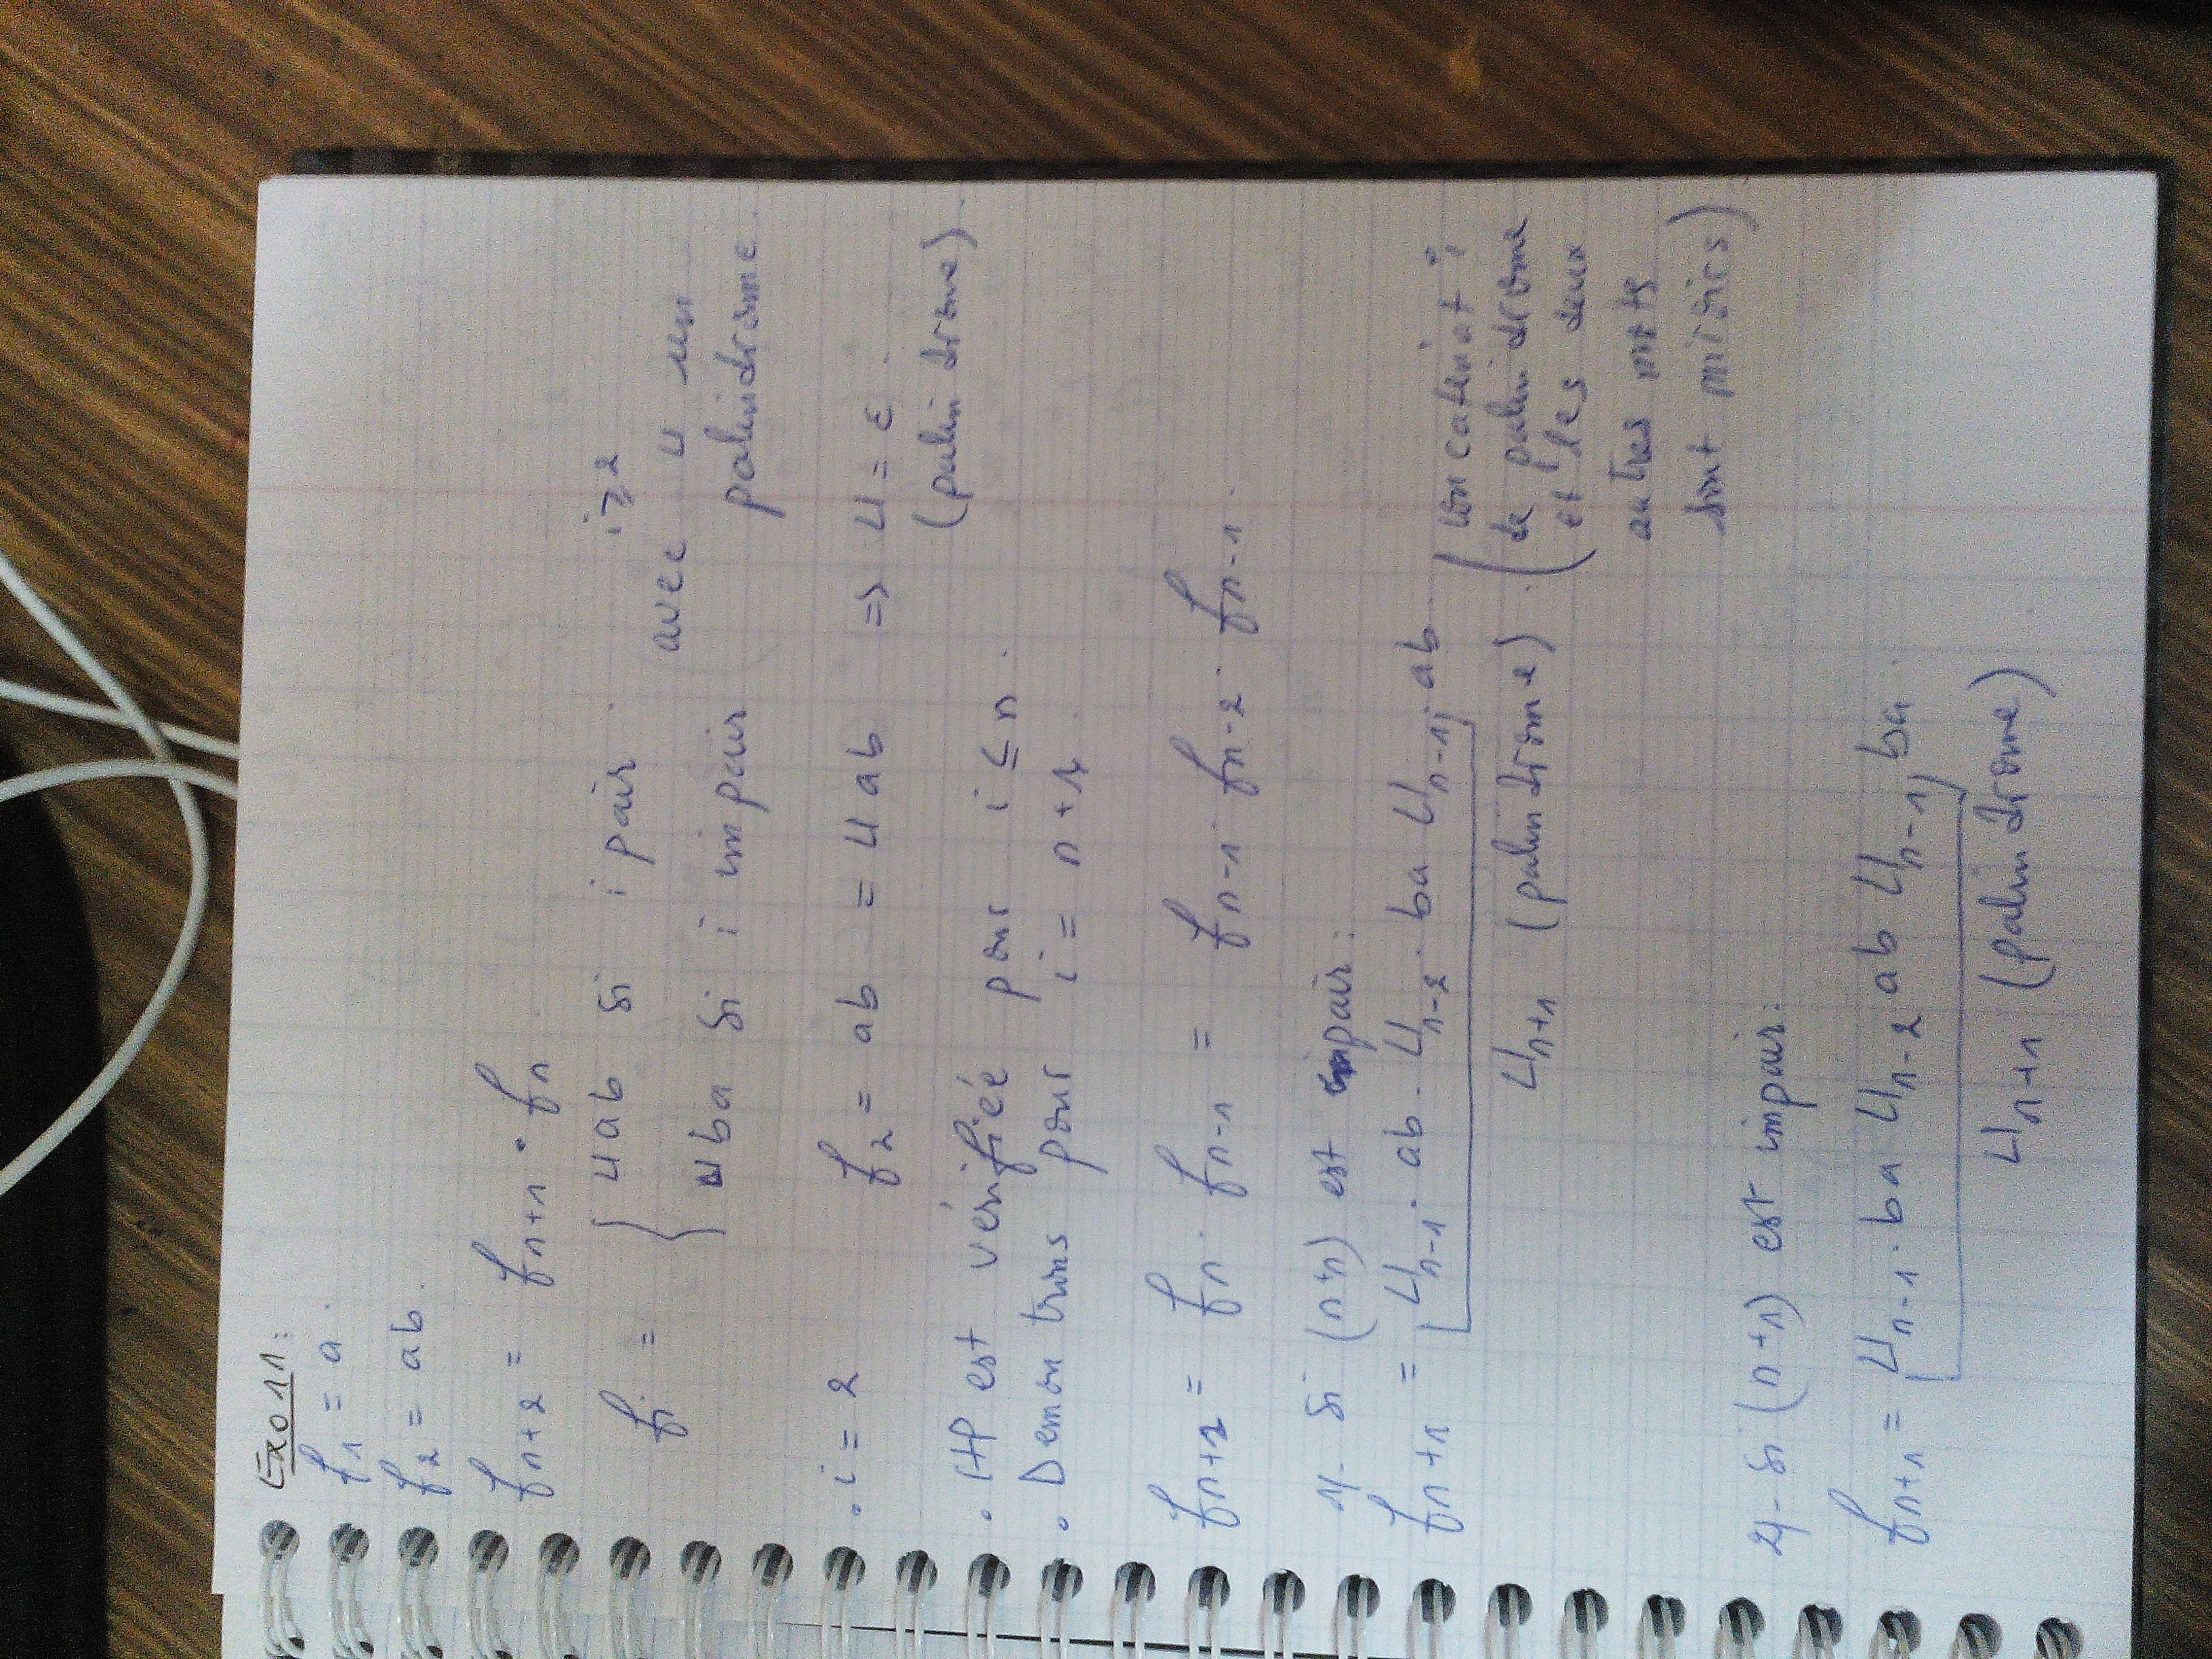 Exo 11:
f₁ = a.
f₂ = ab.
fₙ₊₂ = fₙ₊₁ · fₙ.
fᵢ = { uab si i pair . i ≥ 2
uba si i impair avec u un palindrome.
. i = 2 f₂ = ab = uab => u = ε.
(palindrome).
. HP est vérifiée pour i ≤ n.
. Demontrons pour i = n+1.
fₙ₊₁ = fₙ · fₙ₋₁ = fₙ₋₁ · fₙ₋₂ · fₙ₋₁.
1/- Si (n+1) est pair:
fₙ₊₁ = uₙ₋₁ · ab · uₙ₋₂ · ba uₙ₋₁, ab.
uₙ₊₁ (palindrome). (concatenat°
de palindrome
et les deux
autres mots
sont miroirs)
2/- Si (n+1) est impair:
fₙ₊₁ = uₙ₋₁ · ba uₙ₋₂ ab uₙ₋₁, ba.
uₙ₊₁ (palindrome)